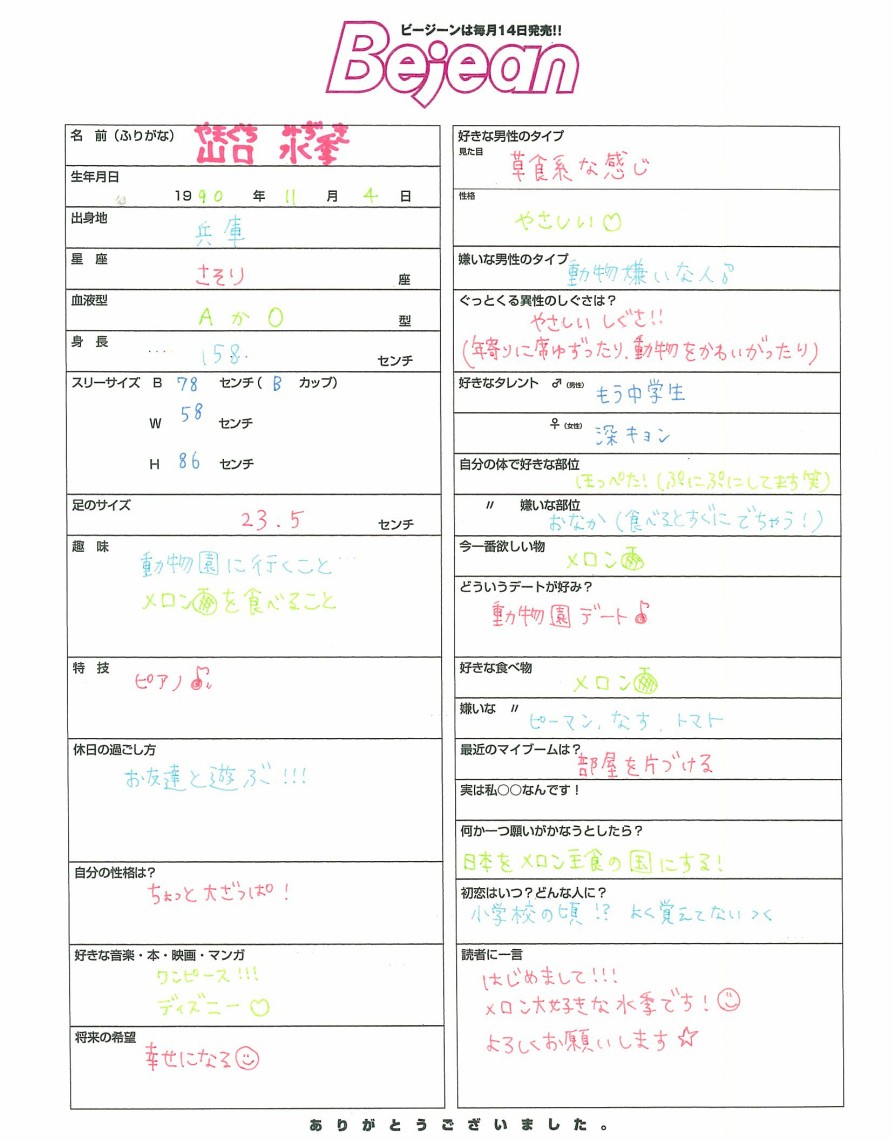 ビージーンは毎月14日発売!!
Bejean
名 前（ふりがな）
やまぐち みずき
山口 水季
生年月日
1990 年 11 月 4 日
出身地
兵庫
星 座
さそり 座
血液型
A か O 型
身 長
158. センチ
スリーサイズ B 78 センチ（ B カップ）
W 58 センチ
H 86 センチ
足のサイズ
23.5 センチ
趣 味
動物園に行くこと…
メロンを食べること
特 技
ピアノ♪
休日の過ごし方
お友達と遊ぶ!!!
自分の性格は？
ちょっと大ざっぱ！
好きな音楽・本・映画・マンガ
ワンピース!!!
ディズニー♡
将来の希望
幸せになる☺
好きな男性のタイプ
見た目
草食系な感じ
性格
やさしい♡
嫌いな男性のタイプ
動物嫌いな人♪
ぐっとくる異性のしぐさは？
やさしいしぐさ!!
(年寄りに席ゆずったり、動物をかわいがったり)
好きなタレント ♂（男性）
もう中学生
♀（女性）
深キョン
自分の体で好きな部位
ほっぺた！(ぷにぷにしてます笑)
〃 嫌いな部位
おなか(食べるとすぐにでちゃう！)
今一番欲しい物
メロン
どういうデートが好み？
動物園デート♪
好きな食べ物
メロン
嫌いな 〃
ピーマン、なす、トマト
最近のマイブームは？
部屋を片づける
実は私○○なんです！
何か一つ願いがかなうとしたら？
日本をメロン主食の国にする！
初恋はいつ？どんな人に？
小学校の頃!? よく覚えてないっく
読者に一言
はじめまして!!!
メロン大好きな水季でち！☺
よろしくお願いします☆
ありがとうございました。